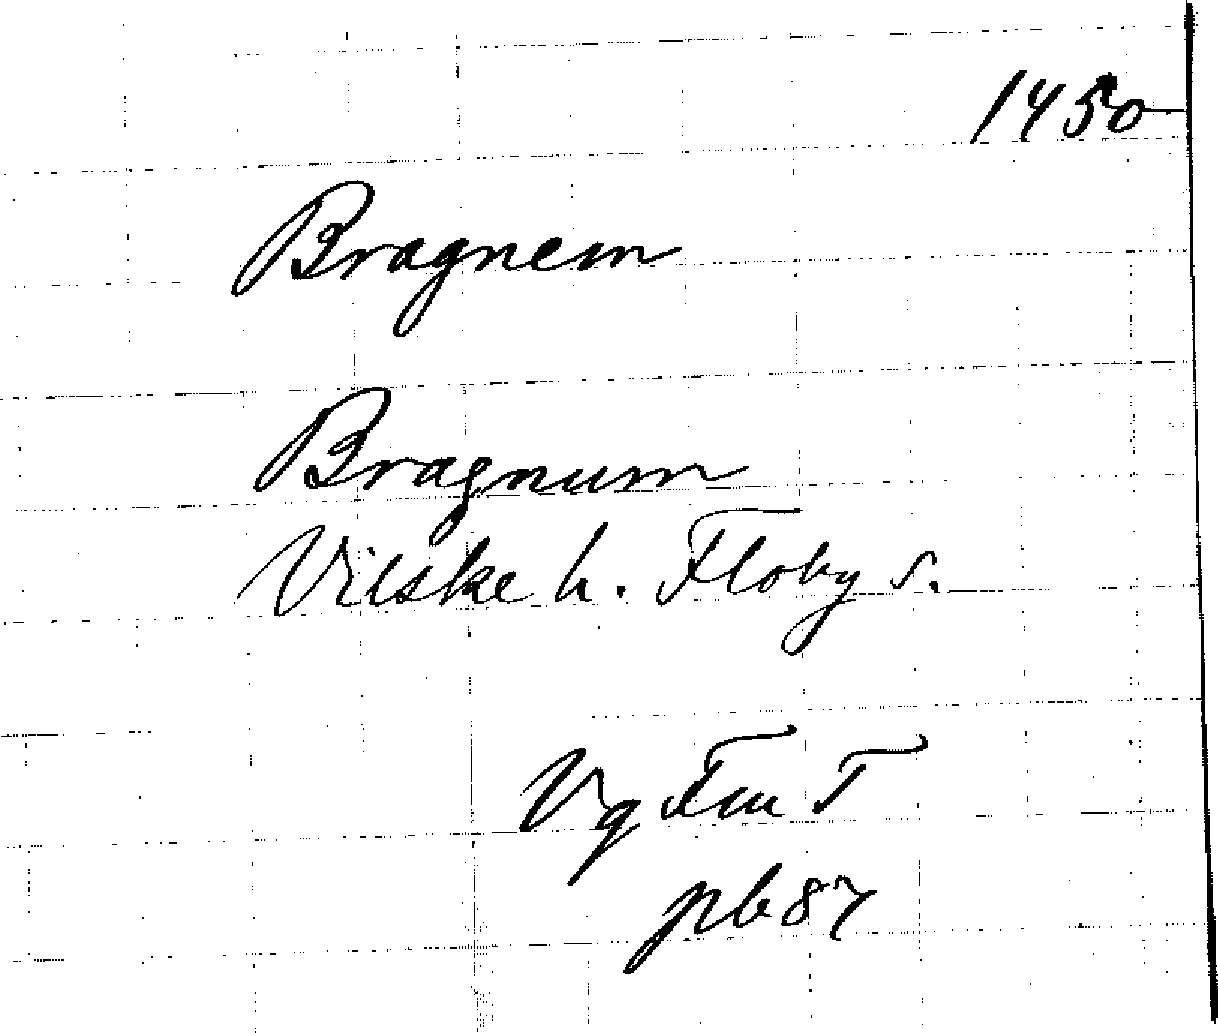 1450
Bragnem
Bragnum
Vilske h. Floby s.
Vg Fm T
pb 87